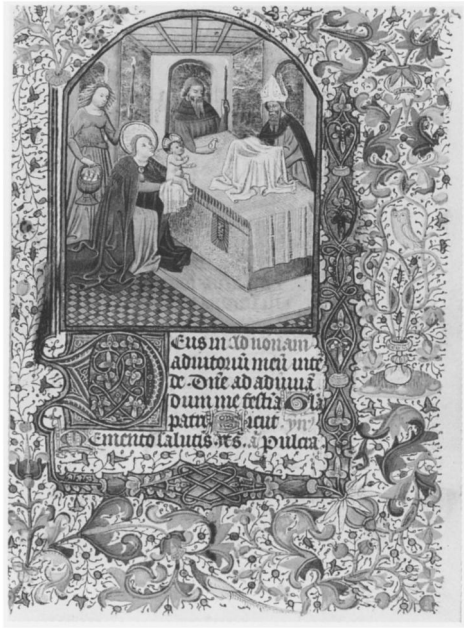 Eus in Ad nonam
adiutoriū meū inte
de. Dn̄e ad adiuuā
dum me festīa Gl̄a
patri Sicut ym̄
Memento salutis. añ. Pulcra